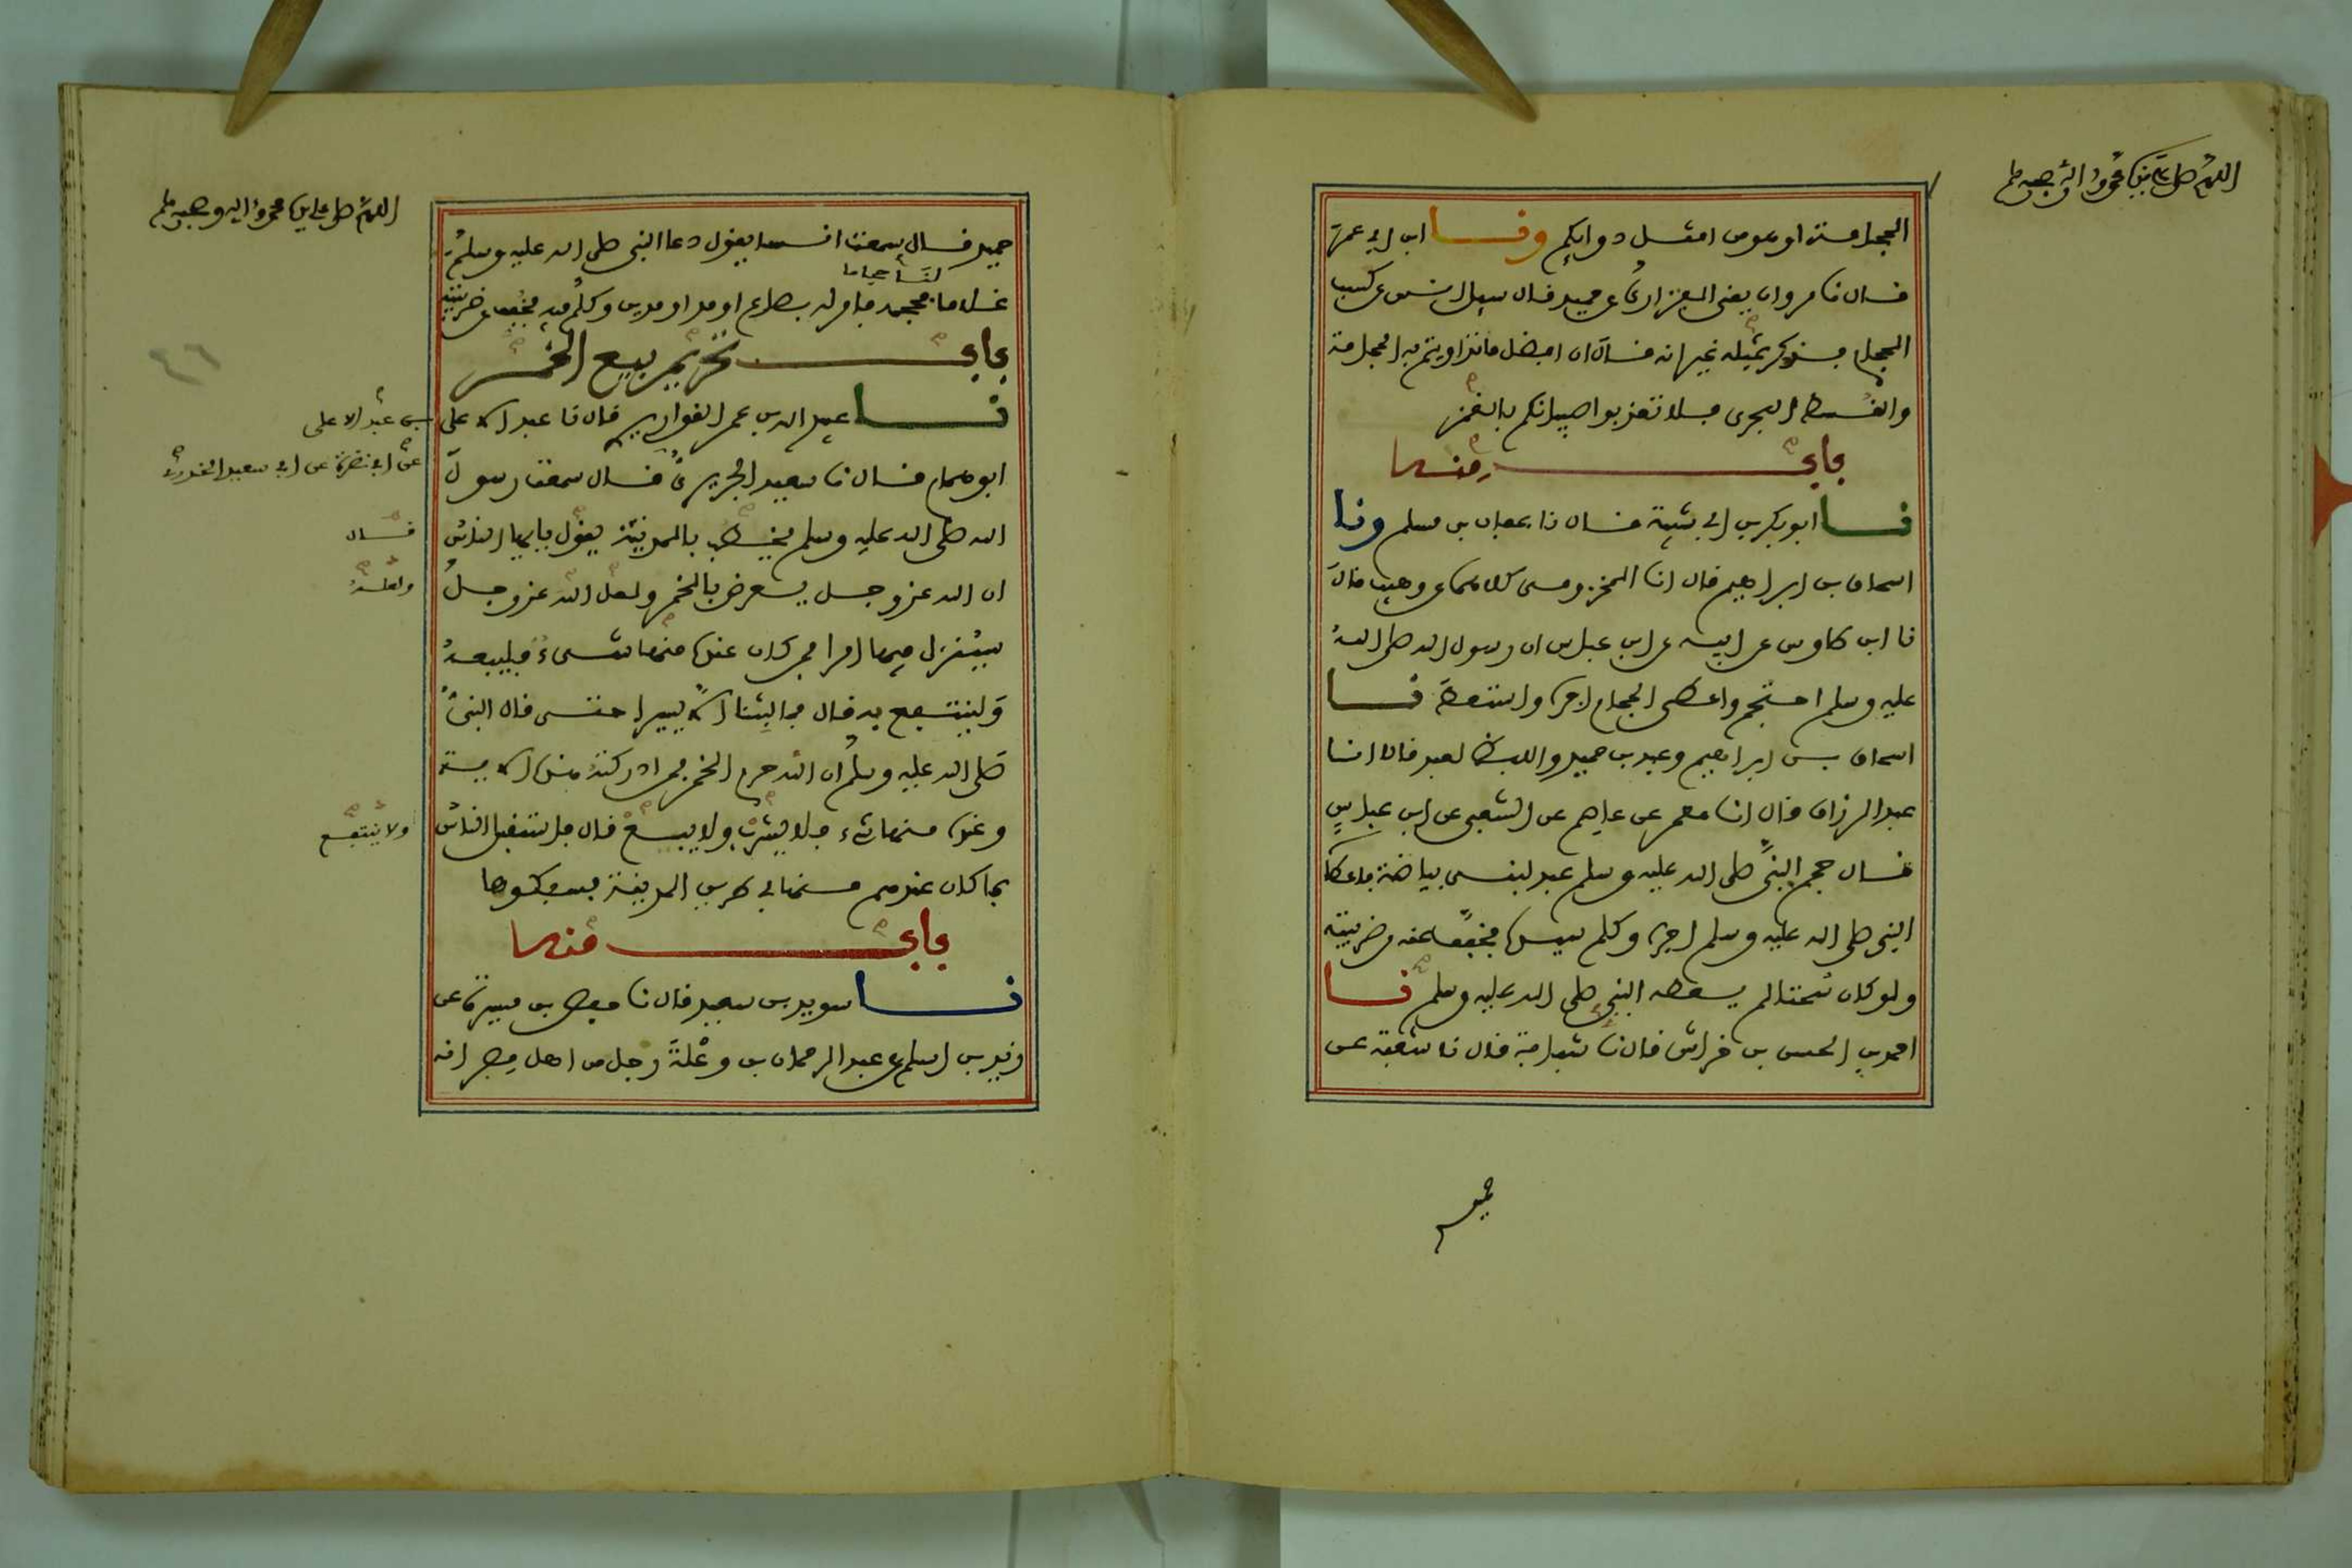 اللهم صل على نبينا محمد وءاله وصحبه وسلم
الحجامة او هو من امثل دوايكم ونا ابن ابي عمر
قال نا مروان يعني الفزاري عن حميد قال سيل انس عن كسب
الحجام فذكر بمثله غير انه قال ان افضل ما تداويتم به الحجامة
والقسط البحري فلا تعذبوا صبيانكم بالغمز
باب منه
نا ابو بكر بن ابي شيبة قال نا عفان بن مسلم ونا
اسحاق بن ابراهيم قال انا المخزومي كلاهما عن وهيب قال
نا ابن طاوس عن ابيه عن ابن عباس ان رسول الله صلى الله
عليه وسلم احتجم واعطى الحجام اجره واستعط نا
اسحاق بن ابراهيم وعبد بن حميد واللفظ لعبد قالا انا
عبد الرزاق قال انا معمر عن عاصم عن الشعبي عن ابن عباس
قال حجم النبي صلى الله عليه وسلم عبد لبني بياضة فاعطاه
النبي صلى الله عليه وسلم اجره وكلم سيده فخفف عنه من ضريبته
ولو كان سحتا لم يعطه النبي صلى الله عليه وسلم نا
احمد بن الحسن بن خراش قال نا شبابة قال نا شعبة عن
حميد
اللهم صل على نبينا محمد وءاله وصحبه وسلم
حميد قال سمعت انسا يقول دعا النبي صلى الله عليه وسلم
لنا حجاما
غلاما فحجمه فامر له بصاع او مد او مدين وكلم فيه فخفف عن ضريبته
باب تحريم بيع الخمر
نا عبيد الله بن عمر القواريري قال نا عبد الاعلى
بن عبد الاعلى
ابو همام قال نا سعيد الجريري قال سمعت رسول
عن ابي نضرة عن ابي سعيد الخدري
الله صلى الله عليه وسلم يخطب بالمدينة يقول يايها الناس
قال
ان الله عز وجل يعرض بالخمر ولعل الله عز وجل
ولعله
سينزل فيها امرا فمن كان عنده منها شيء فليبعه
ولينتفع به قال فما لبثنا الا يسيرا حتى قال النبي
صلى الله عليه وسلم ان الله حرم الخمر فمن ادركته هذه الاية
وعنده منها شيء فلا يشرب ولا يبع قال فاستقبل الناس
ولا ينتفع
بما كان عندهم منها في طريق المدينة فسفكوها
باب منه
نا سويد بن سعيد قال نا حفص بن ميسرة عن
زيد بن اسلم عن عبد الرحمان بن وعلة رجل من اهل مصر انه